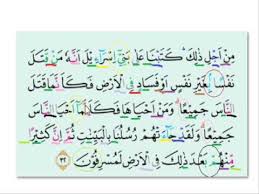 مِنْ أَجْلِ ذَٰلِكَ كَتَبْنَا عَلَىٰ بَنِىٓ إِسْرَٰٓءِيلَ أَنَّهُۥ مَن قَتَلَ
نَفْسًۢا بِغَيْرِ نَفْسٍ أَوْ فَسَادٍ فِى ٱلْأَرْضِ فَكَأَنَّمَا قَتَلَ
ٱلنَّاسَ جَمِيعًا وَمَنْ أَحْيَاهَا فَكَأَنَّمَآ أَحْيَا ٱلنَّاسَ
جَمِيعًا وَلَقَدْ جَآءَتْهُمْ رُسُلُنَا بِٱلْبَيِّنَٰتِ ثُمَّ إِنَّ كَثِيرًا
مِّنْهُم بَعْدَ ذَٰلِكَ فِى ٱلْأَرْضِ لَمُسْرِفُونَ ٣٢